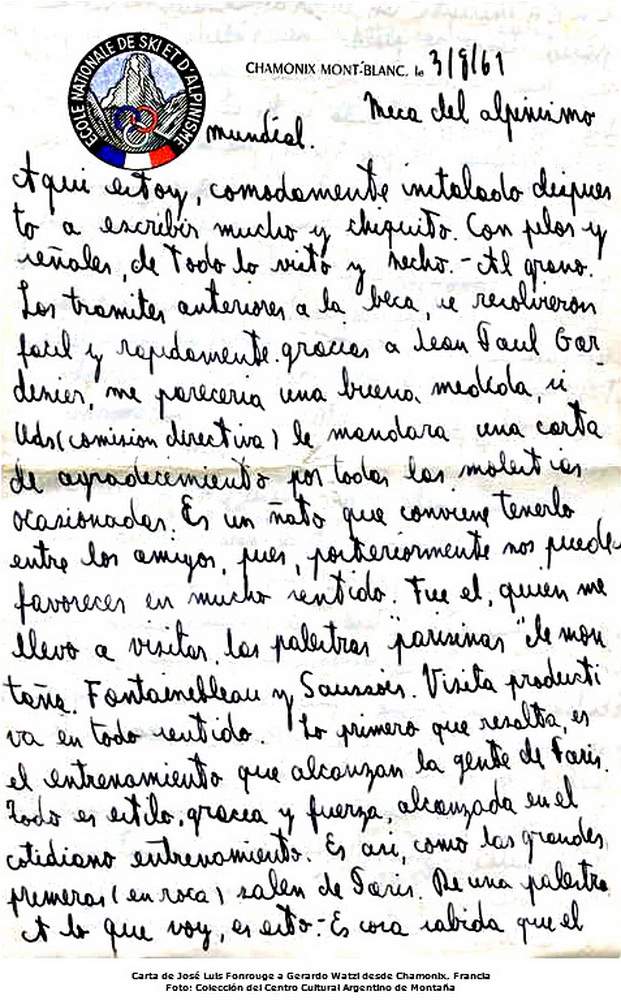 ECOLE NATIONALE DE SKI ET D'ALPINISME
CHAMONIX MONT-BLANC, le 3/8/61
Meca del alpinismo
mundial.
Aqui estoy, comodamente instalado dispues
to a escribir mucho y chiquito. Con pelos y
señales, de todo lo visto y hecho.- Al grano.
Los tramites anteriores a la beca, se resolvieron
facil y rapidamente gracias a Jean Paul Gar-
denier, me pareceria una buena medida, si
Uds (comision directiva) le mandara una carta
de agradecimiento por todas las molestias
ocasionadas. Es un ñato que conviene tenerlo
entre los amigos, pues, posteriormente nos puede
favorecer en mucho sentido. Fue el, quien me
llevo a visitar, las palestras "parisinas" de mon
taña. Fontainebleau y Saussois. Visita producti
va en todo sentido. Lo primero que resalta, es
el entrenamiento que alcanzan la gente de Paris.
Todo es estilo, gracia y fuerza, alcanzada en el
cotidiano entrenamiento. Es asi, como las grandes
primeras (en roca) salen de Paris. De una palestra
A lo que voy, es esto:- Es cosa sabida que el
Carta de José Luis Fonrouge a Gerardo Watzl desde Chamonix. Francia
Foto: Colección del Centro Cultural Argentino de Montaña